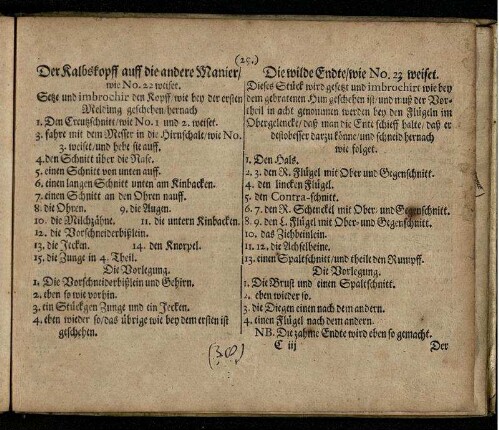 (25.)
Der Kalbskopff auff die andere Manier/
wie No. 22 weiset.
Setz und imbrochir den Kopff/ wie bey der ersten
Meldung geschehen/ hernach
1. Den Creutzschnitt/ wie No. 1 und 2. weiset.
3. fahre mit dem Messer in die Hirnschale/ wie No.
3. weiset/ und hebe sie auff.
4. den Schnitt über die Nase.
5. einen Schnitt von unten auff.
6. einen langen Schnitt unten am Kinbacken.
7. einen Schnitt an den Ohren nauff.
8. die Ohren. 9. die Augen.
10. die Milchzähne. 11. die untern Kinbacken.
12. die Vorschneiderbißlein.
13. die Jecken. 14. den Knorpel.
15. die Zunge in 4. Theil.
Die Vorlegung.
1. Die Vorschneiderbißlein und Gehirn.
2. eben so wie vorhin.
3. ein Stückgen Zunge und ein Jecken.
4. eben wieder so/ das übrige wie bey dem ersten ist
geschehen.
Die wilde Endte/ wie No. 23 weiset.
Dieses Stück wird gesetzt und imbrochirt wie bey
dem gebratenen Hun geschehen ist/ und muß der Vor-
theil in acht genommen werden bey den Flügeln im
Obergelencke/ daß man die Ente schieff halte/ daß er
destobesser darzu könne/ und schneid hernach
wie folget.
1. Den Hals.
2. 3. den R. Flügel mit Ober und Gegenschnitt.
4. den lincken Flügel.
5. den Contra-schnitt.
6. 7. den R. Schenckel mit Ober- und Gegenschnitt.
8. 9. den L. Flügel mit Ober- und Gegenschnitt.
10. das Ziehbeinlein.
11. 12. die Achselbeine.
13. einen Spaltschnitt/ und theilt den Rumpff.
Die Vorlegung.
1. Die Brust und einen Spaltschnitt.
2. eben wieder so.
3. die Diegen einen nach dem andern.
4. einen Flügel nach dem andern.
NB. Die zahme Endte wird eben so gemacht.
C iij Der